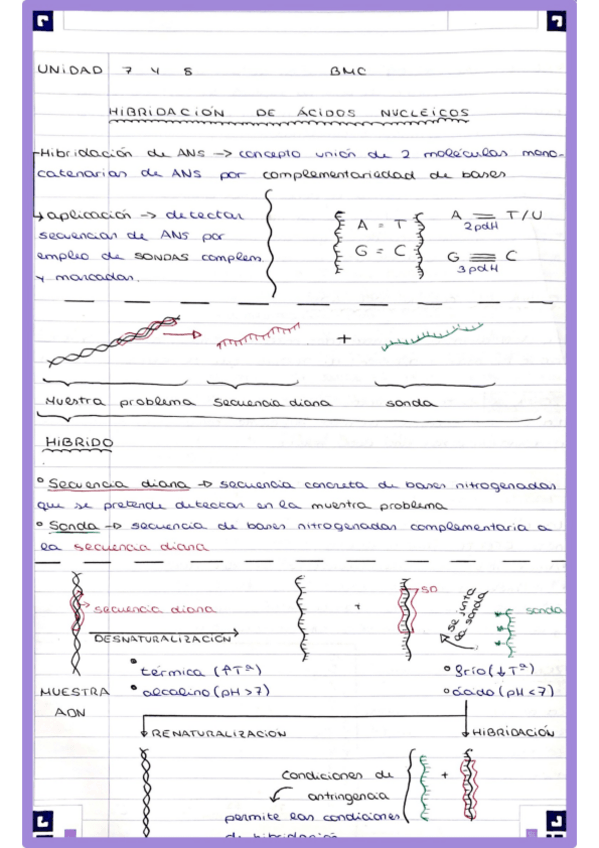 UNIDAD 7 Y 8 BMC
HIBRIDACIÓN DE ÁCIDOS NUCLEICOS
Hibridación de ANS → concepto unión de 2 moléculas mono-
catenarias de ANS por complementariedad de bases
aplicación → detectar
secuencias de ANS por
empleo de SONDAS complem.
y marcadas.
A = T
G = C
A = T/U
2pdH
G ≡ C
3pdH
+
Muestra problema Secuencia diana sonda
HIBRIDO
° Secuencia diana → secuencia concreta de bases nitrogenadas
que se pretende detectar en la muestra problema
° Sonda → secuencia de bases nitrogenadas complementaria a
la secuencia diana
secuencia diana
DESNATURALIZACIÓN
• térmica (↑Tª)
• alcalino (pH >7)
MUESTRA
ADN
+
SD
se junta
la sonda
sonda
° frío (↓Tª)
° ácido (pH <7)
RENATURALIZACION
HIBRIDACIÓN
Condiciones de
antringencia
permite las condiciones
de hibridación
+